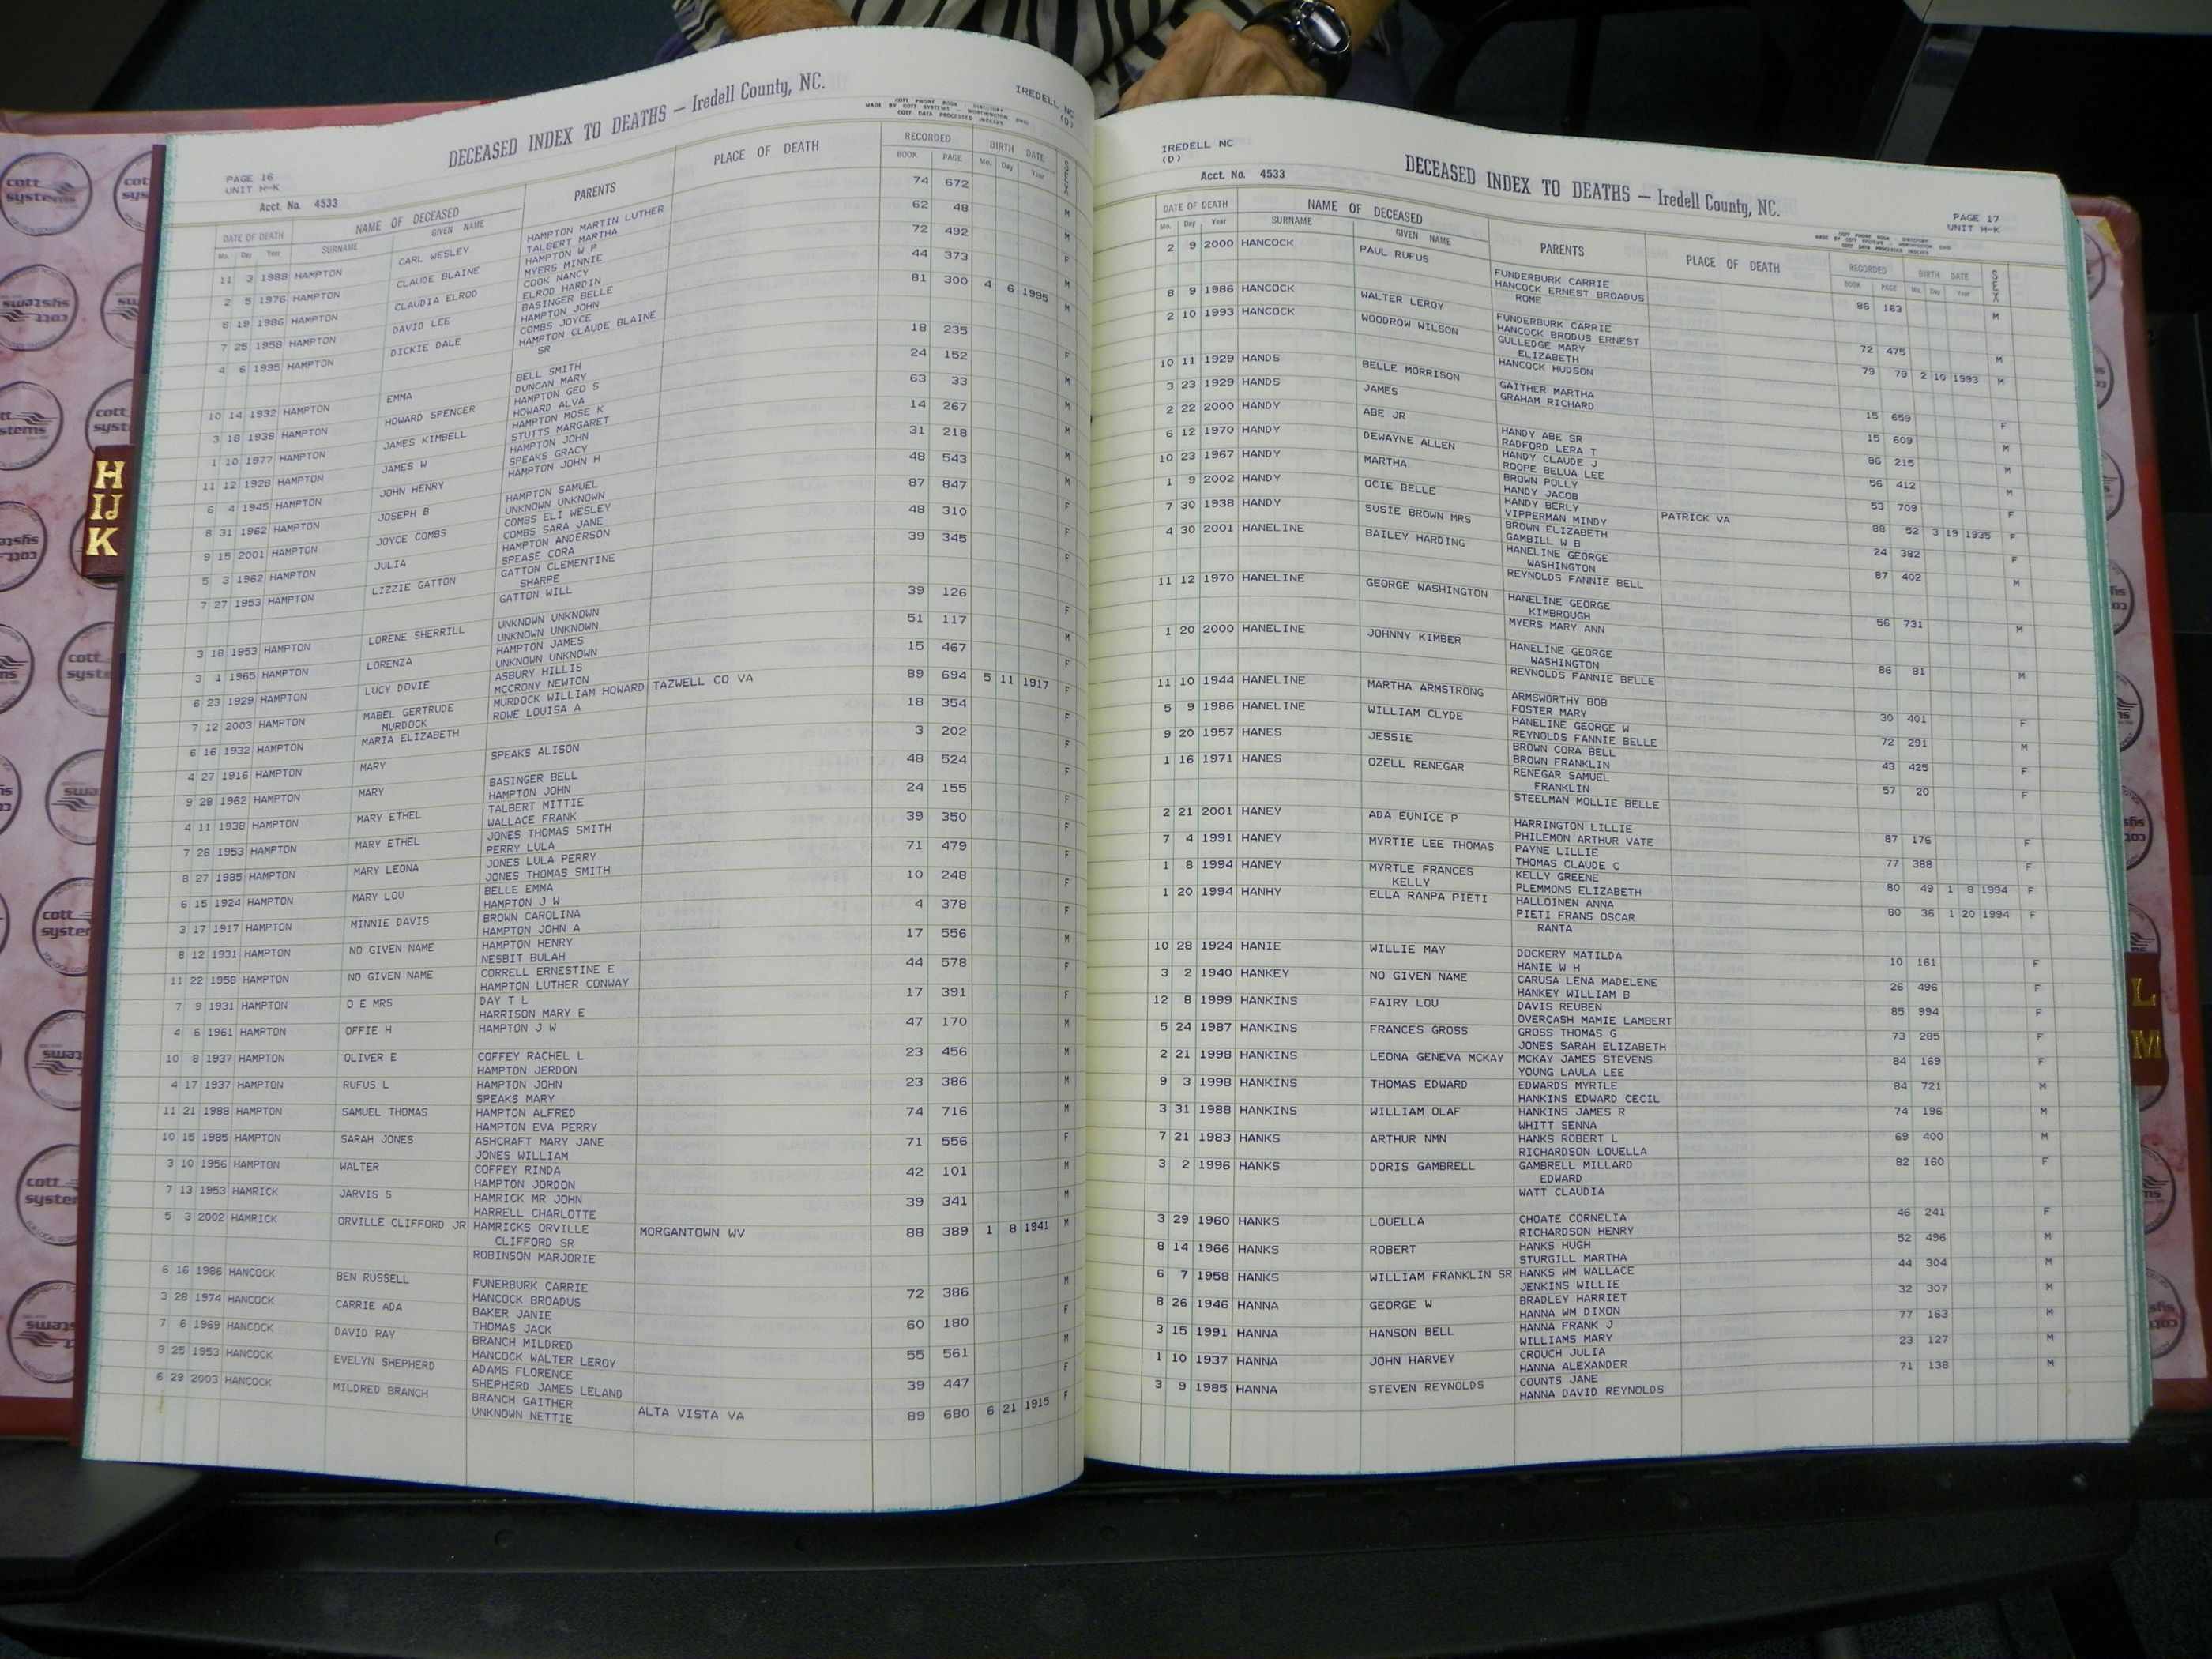 DECEASED INDEX TO DEATHS — Iredell County, NC.
IREDELL NC
(D)
COTT PHONE BOOK - DIRECTORY
MADE BY COTT SYSTEMS - WORTHINGTON, OHIO
COTT DATA PROCESSED INDEXES
PAGE 16
UNIT H-K
Acct. No. 4533
DATE OF DEATH NAME OF DECEASED PARENTS PLACE OF DEATH RECORDED BIRTH DATE SEX
Mo. Day Year SURNAME GIVEN NAME BOOK PAGE Mo. Day Year
11 3 1988 HAMPTON CARL WESLEY HAMPTON MARTIN LUTHER 74 672 M
TALBERT MARTHA
2 5 1976 HAMPTON CLAUDE BLAINE HAMPTON W P 62 48 M
MYERS MINNIE
8 19 1986 HAMPTON CLAUDIA ELROD COOK NANCY 72 492 F
ELROD HARDIN
7 25 1958 HAMPTON DAVID LEE BASINGER BELLE 44 373 M
HAMPTON JOHN
4 6 1995 HAMPTON DICKIE DALE COMBS JOYCE 81 300 4 6 1995 M
HAMPTON CLAUDE BLAINE
SR
10 14 1932 HAMPTON EMMA BELL SMITH 18 235 F
DUNCAN MARY
3 18 1938 HAMPTON HOWARD SPENCER HAMPTON GEO S 24 152 M
HOWARD ALVA
1 10 1977 HAMPTON JAMES KIMBELL HAMPTON MOSE K 63 33 M
STUTTS MARGARET
11 12 1928 HAMPTON JAMES W HAMPTON JOHN 14 267 M
SPEAKS GRACY
6 4 1945 HAMPTON JOHN HENRY HAMPTON JOHN H 31 218 M
8 31 1962 HAMPTON JOSEPH B HAMPTON SAMUEL 48 543 M
UNKNOWN UNKNOWN
9 15 2001 HAMPTON JOYCE COMBS COMBS ELI WESLEY 87 847 F
COMBS SARA JANE
5 3 1962 HAMPTON JULIA HAMPTON ANDERSON 48 310 F
SPEASE CORA
7 27 1953 HAMPTON LIZZIE GATTON GATTON CLEMENTINE 39 345 F
SHARPE
GATTON WILL
3 18 1953 HAMPTON LORENE SHERRILL UNKNOWN UNKNOWN 39 126 F
UNKNOWN UNKNOWN
3 1 1965 HAMPTON LORENZA HAMPTON JAMES 51 117 M
UNKNOWN UNKNOWN
6 23 1929 HAMPTON LUCY DOVIE ASBURY HILLIS 15 467 F
MCCRONY NEWTON
7 12 2003 HAMPTON MABEL GERTRUDE MURDOCK WILLIAM HOWARD TAZWELL CO VA 89 694 5 11 1917 F
MURDOCK ROWE LOUISA A
6 16 1932 HAMPTON MARIA ELIZABETH 18 354 F
4 27 1916 HAMPTON MARY SPEAKS ALISON 3 202 F
9 28 1962 HAMPTON MARY BASINGER BELL 48 524 F
HAMPTON JOHN
4 11 1938 HAMPTON MARY ETHEL TALBERT MITTIE 24 155 F
WALLACE FRANK
7 28 1953 HAMPTON MARY ETHEL JONES THOMAS SMITH 39 350 F
PERRY LULA
8 27 1985 HAMPTON MARY LEONA JONES LULA PERRY 71 479 F
JONES THOMAS SMITH
6 15 1924 HAMPTON MARY LOU BELLE EMMA 10 248 F
HAMPTON J W
3 17 1917 HAMPTON MINNIE DAVIS BROWN CAROLINA 4 378 F
HAMPTON JOHN A
8 12 1931 HAMPTON NO GIVEN NAME HAMPTON HENRY 17 556 M
NESBIT BULAH
11 22 1958 HAMPTON NO GIVEN NAME CORRELL ERNESTINE E 44 578 F
HAMPTON LUTHER CONWAY
7 9 1931 HAMPTON O E MRS DAY T L 17 391 F
HARRISON MARY E
4 6 1961 HAMPTON OFFIE H HAMPTON J W 47 170 M
10 8 1937 HAMPTON OLIVER E COFFEY RACHEL L 23 456 M
HAMPTON JERDON
4 17 1937 HAMPTON RUFUS L HAMPTON JOHN 23 386 M
SPEAKS MARY
11 21 1988 HAMPTON SAMUEL THOMAS HAMPTON ALFRED 74 716 M
HAMPTON EVA PERRY
10 15 1985 HAMPTON SARAH JONES ASHCRAFT MARY JANE 71 556 F
JONES WILLIAM
3 10 1956 HAMPTON WALTER COFFEY RINDA 42 101 M
HAMPTON JORDON
7 13 1953 HAMRICK JARVIS S HAMRICK MR JOHN 39 341 M
HARRELL CHARLOTTE
5 3 2002 HAMRICK ORVILLE CLIFFORD JR HAMRICKS ORVILLE MORGANTOWN WV 88 389 1 8 1941 M
CLIFFORD SR
ROBINSON MARJORIE
6 16 1986 HANCOCK BEN RUSSELL FUNERBURK CARRIE 72 386 M
HANCOCK BROADUS
3 28 1974 HANCOCK CARRIE ADA BAKER JANIE 60 180 F
THOMAS JACK
7 6 1969 HANCOCK DAVID RAY BRANCH MILDRED 55 561 M
HANCOCK WALTER LEROY
9 25 1953 HANCOCK EVELYN SHEPHERD ADAMS FLORENCE 39 447 F
SHEPHERD JAMES LELAND
6 29 2003 HANCOCK MILDRED BRANCH BRANCH GAITHER ALTA VISTA VA 89 680 6 21 1915 F
UNKNOWN NETTIE
IREDELL NC
(D)
DECEASED INDEX TO DEATHS — Iredell County, NC.
Acct. No. 4533
PAGE 17
UNIT H-K
COTT PHONE BOOK - DIRECTORY
MADE BY COTT SYSTEMS - WORTHINGTON, OHIO
COTT DATA PROCESSED INDEXES
DATE OF DEATH NAME OF DECEASED PARENTS PLACE OF DEATH RECORDED BIRTH DATE SEX
Mo. Day Year SURNAME GIVEN NAME BOOK PAGE Mo. Day Year
2 9 2000 HANCOCK PAUL RUFUS FUNDERBURK CARRIE 86 163 M
HANCOCK ERNEST BROADUS
ROME
8 9 1986 HANCOCK WALTER LEROY FUNDERBURK CARRIE 72 475 M
HANCOCK BRODUS ERNEST
2 10 1993 HANCOCK WOODROW WILSON GULLEDGE MARY 79 79 2 10 1993 M
ELIZABETH
HANCOCK HUDSON
10 11 1929 HANDS BELLE MORRISON GAITHER MARTHA 15 659 F
GRAHAM RICHARD
3 23 1929 HANDS JAMES 15 609 M
2 22 2000 HANDY ABE JR HANDY ABE SR 86 215 M
RADFORD LERA T
6 12 1970 HANDY DEWAYNE ALLEN HANDY CLAUDE J 56 412 M
ROOPE BELUA LEE
10 23 1967 HANDY MARTHA BROWN POLLY 53 709 F
HANDY JACOB
1 9 2002 HANDY OCIE BELLE HANDY BERLY PATRICK VA 88 52 3 19 1935 F
VIPPERMAN MINDY
7 30 1938 HANDY SUSIE BROWN MRS BROWN ELIZABETH 24 382 F
GAMBILL W B
4 30 2001 HANELINE BAILEY HARDING HANELINE GEORGE 87 402 M
WASHINGTON
REYNOLDS FANNIE BELL
11 12 1970 HANELINE GEORGE WASHINGTON HANELINE GEORGE 56 731 M
KIMBROUGH
MYERS MARY ANN
1 20 2000 HANELINE JOHNNY KIMBER HANELINE GEORGE 86 81 M
WASHINGTON
REYNOLDS FANNIE BELLE
11 10 1944 HANELINE MARTHA ARMSTRONG ARMSWORTHY BOB 30 401 F
FOSTER MARY
5 9 1986 HANELINE WILLIAM CLYDE HANELINE GEORGE W 72 291 M
REYNOLDS FANNIE BELLE
9 20 1957 HANES JESSIE BROWN CORA BELL 43 425 F
BROWN FRANKLIN
1 16 1971 HANES OZELL RENEGAR RENEGAR SAMUEL 57 20 F
FRANKLIN
STEELMAN MOLLIE BELLE
2 21 2001 HANEY ADA EUNICE P HARRINGTON LILLIE 87 176 F
PHILEMON ARTHUR VATE
7 4 1991 HANEY MYRTIE LEE THOMAS PAYNE LILLIE 77 388 F
THOMAS CLAUDE C
1 8 1994 HANEY MYRTLE FRANCES KELLY GREENE 80 49 1 8 1994 F
KELLY PLEMMONS ELIZABETH
1 20 1994 HANHY ELLA RANPA PIETI HALLOINEN ANNA 80 36 1 20 1994 F
PIETI FRANS OSCAR
RANTA
10 28 1924 HANIE WILLIE MAY DOCKERY MATILDA 10 161 F
HANIE W H
3 2 1940 HANKEY NO GIVEN NAME CARUSA LENA MADELENE 26 496 F
HANKEY WILLIAM B
12 8 1999 HANKINS FAIRY LOU DAVIS REUBEN 85 994 F
OVERCASH MAMIE LAMBERT
5 24 1987 HANKINS FRANCES GROSS GROSS THOMAS G 73 285 F
JONES SARAH ELIZABETH
2 21 1998 HANKINS LEONA GENEVA MCKAY MCKAY JAMES STEVENS 84 169 F
YOUNG LAULA LEE
9 3 1998 HANKINS THOMAS EDWARD EDWARDS MYRTLE 84 721 M
HANKINS EDWARD CECIL
3 31 1988 HANKINS WILLIAM OLAF HANKINS JAMES R 74 196 M
WHITT SENNA
7 21 1983 HANKS ARTHUR NMN HANKS ROBERT L 69 400 M
RICHARDSON LOUELLA
3 2 1996 HANKS DORIS GAMBRELL GAMBRELL MILLARD 82 160 F
EDWARD
WATT CLAUDIA
3 29 1960 HANKS LOUELLA CHOATE CORNELIA 46 241 F
RICHARDSON HENRY
8 14 1966 HANKS ROBERT HANKS HUGH 52 496 M
STURGILL MARTHA
6 7 1958 HANKS WILLIAM FRANKLIN SR HANKS WM WALLACE 44 304 M
JENKINS WILLIE
8 26 1946 HANNA GEORGE W BRADLEY HARRIET 32 307 M
HANNA WM DIXON
3 15 1991 HANNA HANSON BELL HANNA FRANK J 77 163 M
WILLIAMS MARY
1 10 1937 HANNA JOHN HARVEY CROUCH JULIA 23 127 M
HANNA ALEXANDER
3 9 1985 HANNA STEVEN REYNOLDS COUNTS JANE 71 138 M
HANNA DAVID REYNOLDS
H
IJ
K
L
M
cott
systems